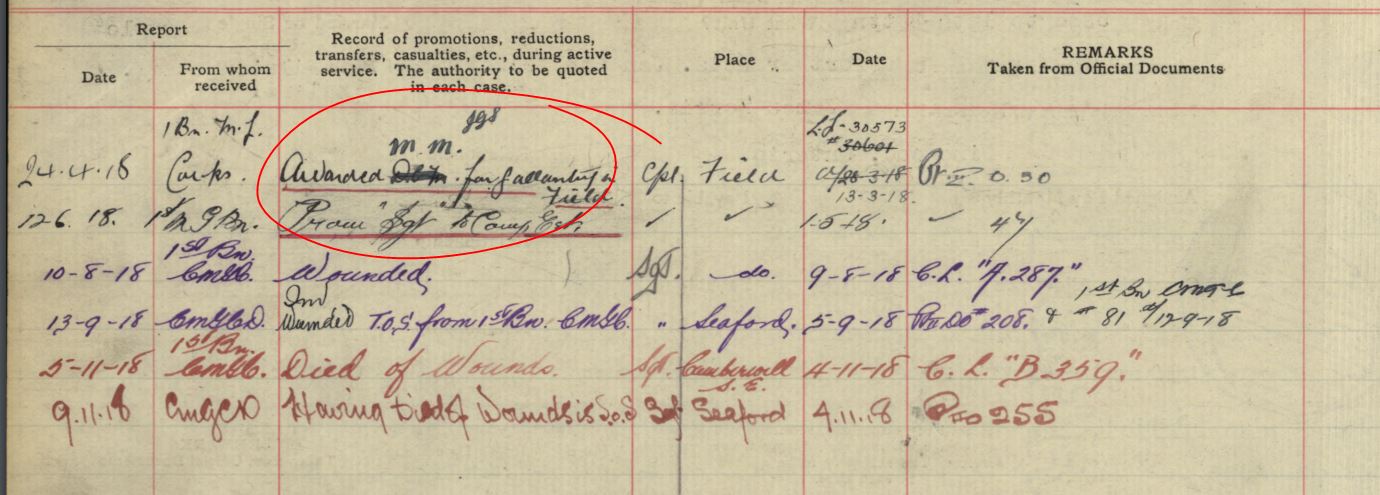 Report
Date
From whom
received
Record of promotions, reductions,
transfers, casualties, etc., during active
service. The authority to be quoted
in each case.
Place
Date
REMARKS
Taken from Official Documents
1 Bn. M.G.
24.4.18 Corps. Awarded M.M. for gallantry in Field. Cpl. Field
30573
30601
13-3-18.
Pt II. O. 30
12 6. 18. 1st M G Bn. Prom "Sgt" to Comp. Est. ✓ ✓ 1-5-18. ✓ 47
1st Bn.
10-8-18 CMGC. Wounded. Sgt. do. 9-8-18 C.L. "A.287."
13-9-18 CMGCD. Inv Wounded T.O.S. from 1st Bn. CMGC. " Seaford. 5-9-18 Pt II DO # 208. & 1st Bn CMGC
# 81 d/12-9-18
1st Bn.
5-11-18 CMGC. Died of Wounds. Sgt. Camberwell
S.E. 4-11-18 C.L. "B359."
9.11.18 CMGCD Having Died of Wounds is S.O.S Sgt Seaford 4.11.18 Pt II DO 255